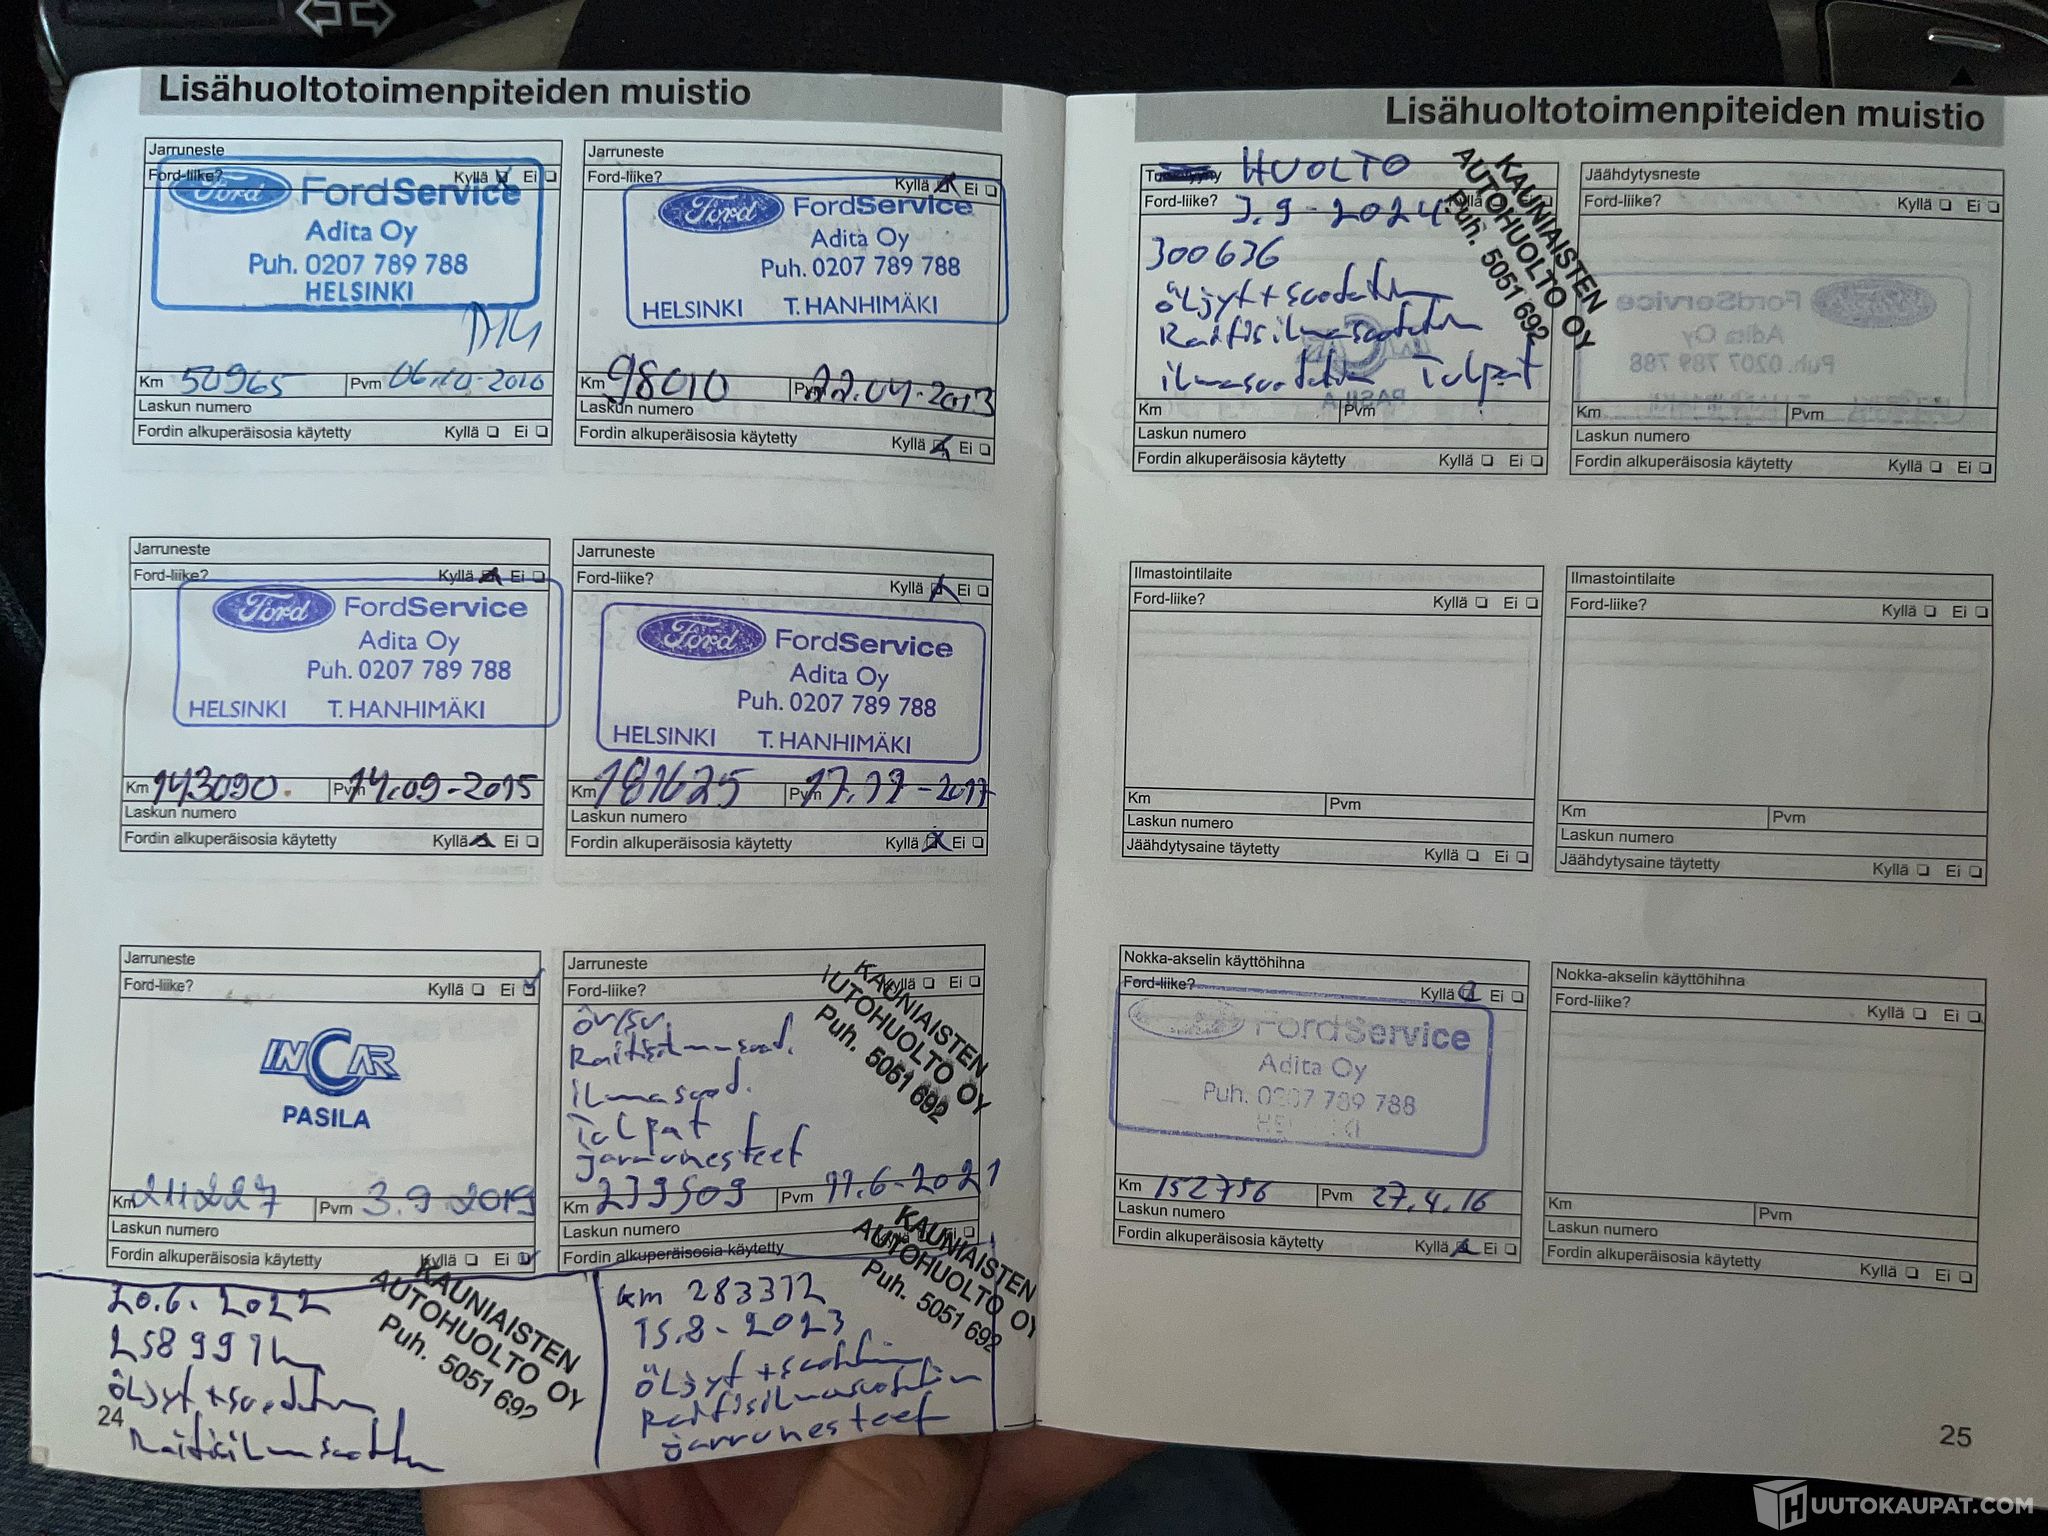 Lisähuoltotoimenpiteiden muistio
Jarruneste
Ford-liike? Kyllä Ei
Ford FordService
Adita Oy
Puh. 0207 789 788
HELSINKI
Km 50965 Pvm 06.10-2010
Laskun numero
Fordin alkuperäisosia käytetty Kyllä Ei
Jarruneste
Ford-liike? Kyllä Ei
Ford FordService
Adita Oy
Puh. 0207 789 788
HELSINKI T. HANHIMÄKI
Km 98010 Pvm 22.04-2013
Laskun numero
Fordin alkuperäisosia käytetty Kyllä Ei
Jarruneste
Ford-liike? Kyllä Ei
Ford FordService
Adita Oy
Puh. 0207 789 788
HELSINKI T. HANHIMÄKI
Km 143090. Pvm 14.09-2015
Laskun numero
Fordin alkuperäisosia käytetty Kyllä Ei
Jarruneste
Ford-liike? Kyllä Ei
Ford FordService
Adita Oy
Puh. 0207 789 788
HELSINKI T. HANHIMÄKI
Km 181625 Pvm 17.11-2017
Laskun numero
Fordin alkuperäisosia käytetty Kyllä Ei
Jarruneste
Ford-liike? Kyllä Ei
INCAR
PASILA
Km 211227 Pvm 3.9 2019
Laskun numero
Fordin alkuperäisosia käytetty Kyllä Ei
Jarruneste
Ford-liike? Kyllä Ei
KAUNIAISTEN
AUTOHUOLTO OY
Puh. 5051 692
Raitisilmasuod.
ilmasuod.
Tulpat
jarrunesteet
Km 239509 Pvm 11.6-2021
Laskun numero
Fordin alkuperäisosia käytetty Kyllä Ei
20.6.2022
258991km
öljyt+suodatin
Raitisilmasuodatin
KAUNIAISTEN
AUTOHUOLTO OY
Puh. 5051 692
km 283312
15.8-2023
öljyt+suodatin
Raitisilmasuodatin
jarrunesteet
KAUNIAISTEN
AUTOHUOLTO OY
Puh. 5051 692
24
Lisähuoltotoimenpiteiden muistio
HUOLTO
Ford-liike? 3.9-2024
300636
öljyt+suodatin
Raitisilmasuodatin
ilmasuodatin Tulpat
KAUNIAISTEN
AUTOHUOLTO OY
Puh. 5051 692
Km Pvm
Laskun numero
Fordin alkuperäisosia käytetty Kyllä Ei
Jäähdytysneste
Ford-liike? Kyllä Ei
Km Pvm
Laskun numero
Fordin alkuperäisosia käytetty Kyllä Ei
Ilmastointilaite
Ford-liike? Kyllä Ei
Km Pvm
Laskun numero
Jäähdytysaine täytetty Kyllä Ei
Ilmastointilaite
Ford-liike? Kyllä Ei
Km Pvm
Laskun numero
Jäähdytysaine täytetty Kyllä Ei
Nokka-akselin käyttöhihna
Ford-liike? Kyllä Ei
FordService
Adita Oy
Puh. 0207 789 788
Km 152756 Pvm 27.4.16
Laskun numero
Fordin alkuperäisosia käytetty Kyllä Ei
Nokka-akselin käyttöhihna
Ford-liike? Kyllä Ei
Km Pvm
Laskun numero
Fordin alkuperäisosia käytetty Kyllä Ei
25
HUUTOKAUPAT.COM